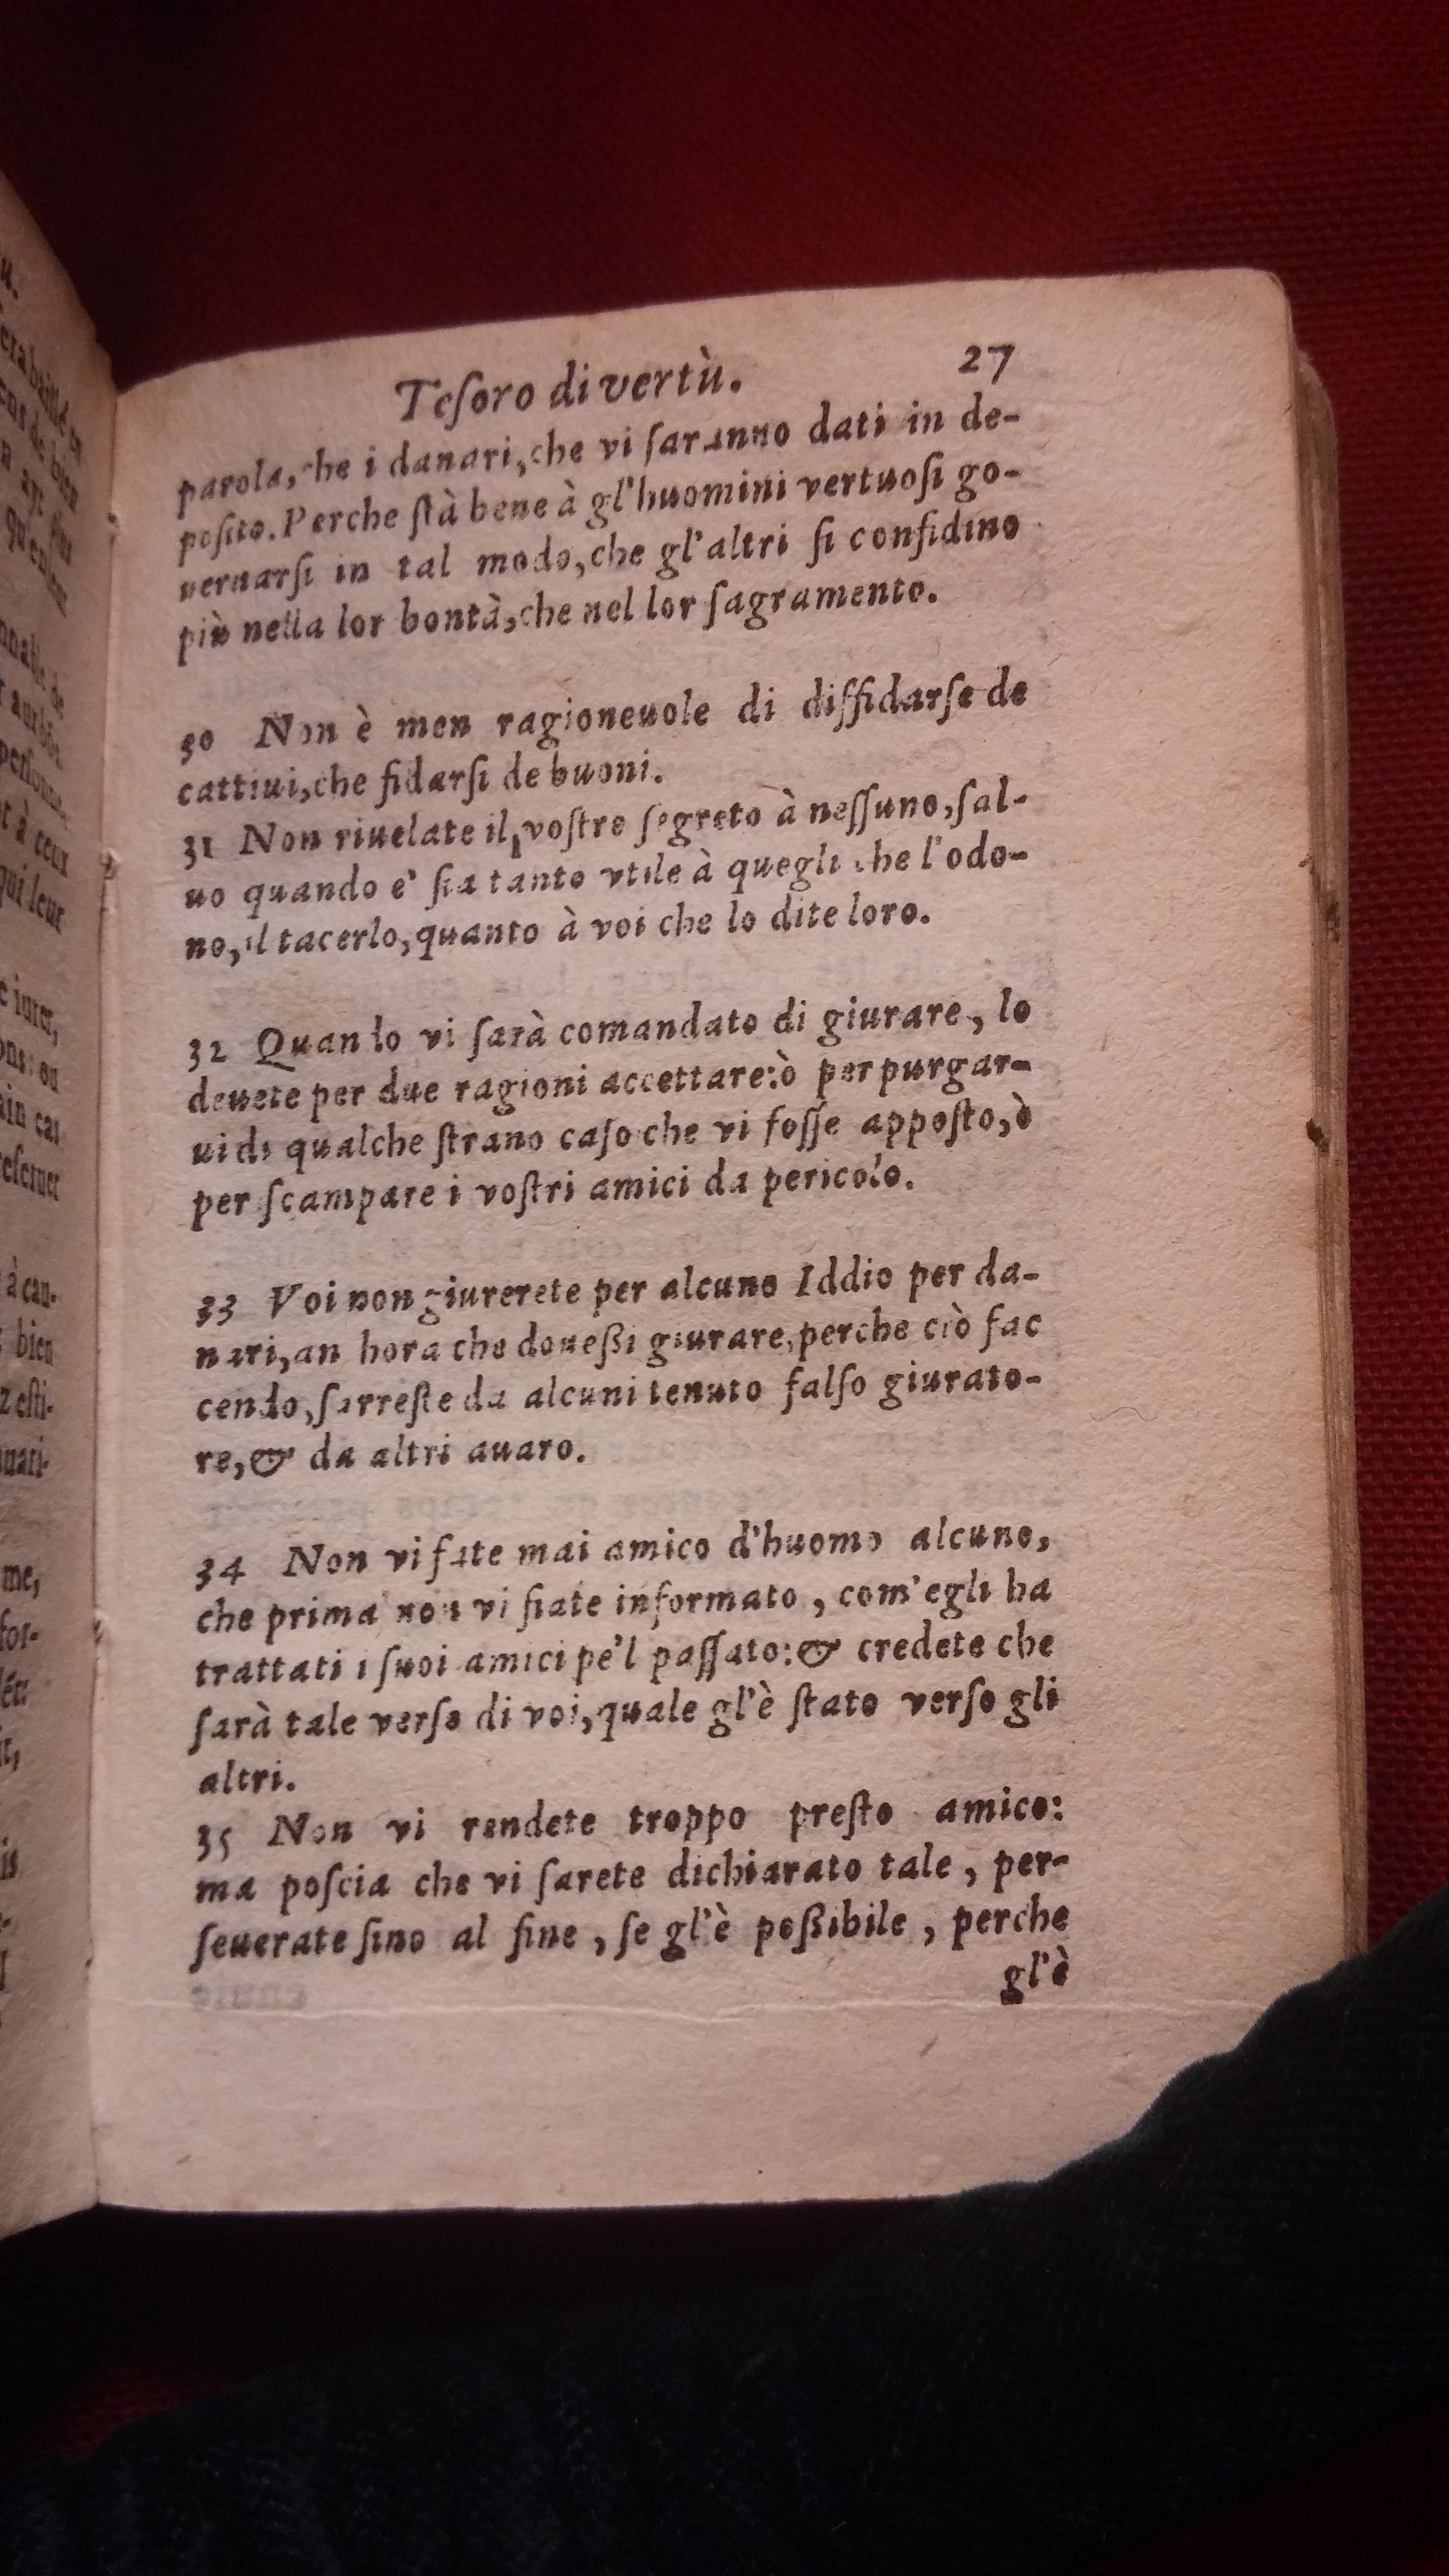 Teſoro di vertù.
27
parola, che i danari, che vi ſaranno dati in de-
poſito. Perche ſtà bene à gl'huomini vertuoſi go-
vernarſi in tal modo, che gl'altri ſi confidino
più nella lor bontà, che nel lor ſagramento.
30 Non è men ragioneuole di diffidarſe de
cattiui, che fidarſi de buoni.
31 Non riuelate il voſtro ſegreto à neſſuno, ſal-
uo quando e' ſia tanto vtile à quegli che l'odo-
no, il tacerlo, quanto à voi che lo dite loro.
32 Quando vi ſarà comandato di giurare, lo
deuete per due ragioni accettare: ò per purgar-
ui di qualche ſtrano caſo che vi foſſe appoſto, ò
per ſcampare i voſtri amici da pericolo.
33 Voi non giurerete per alcuno Iddio per da-
nari, an hora che doueßi giurare, perche ciò fac
cendo, ſarreſte da alcuni tenuto falſo giurato-
re, & da altri auaro.
34 Non vi fate mai amico d'huomo alcuno,
che prima non vi ſiate informato, com'egli ha
trattati i ſuoi amici pe'l paſſato: & credete che
ſarà tale verſo di voi, quale gl'è ſtato verſo gli
altri.
35 Non vi rendete troppo preſto amico:
ma poſcia che vi ſarete dichiarato tale, per-
ſeuerate ſino al fine, ſe gl'è poßibile, perche
gl'è